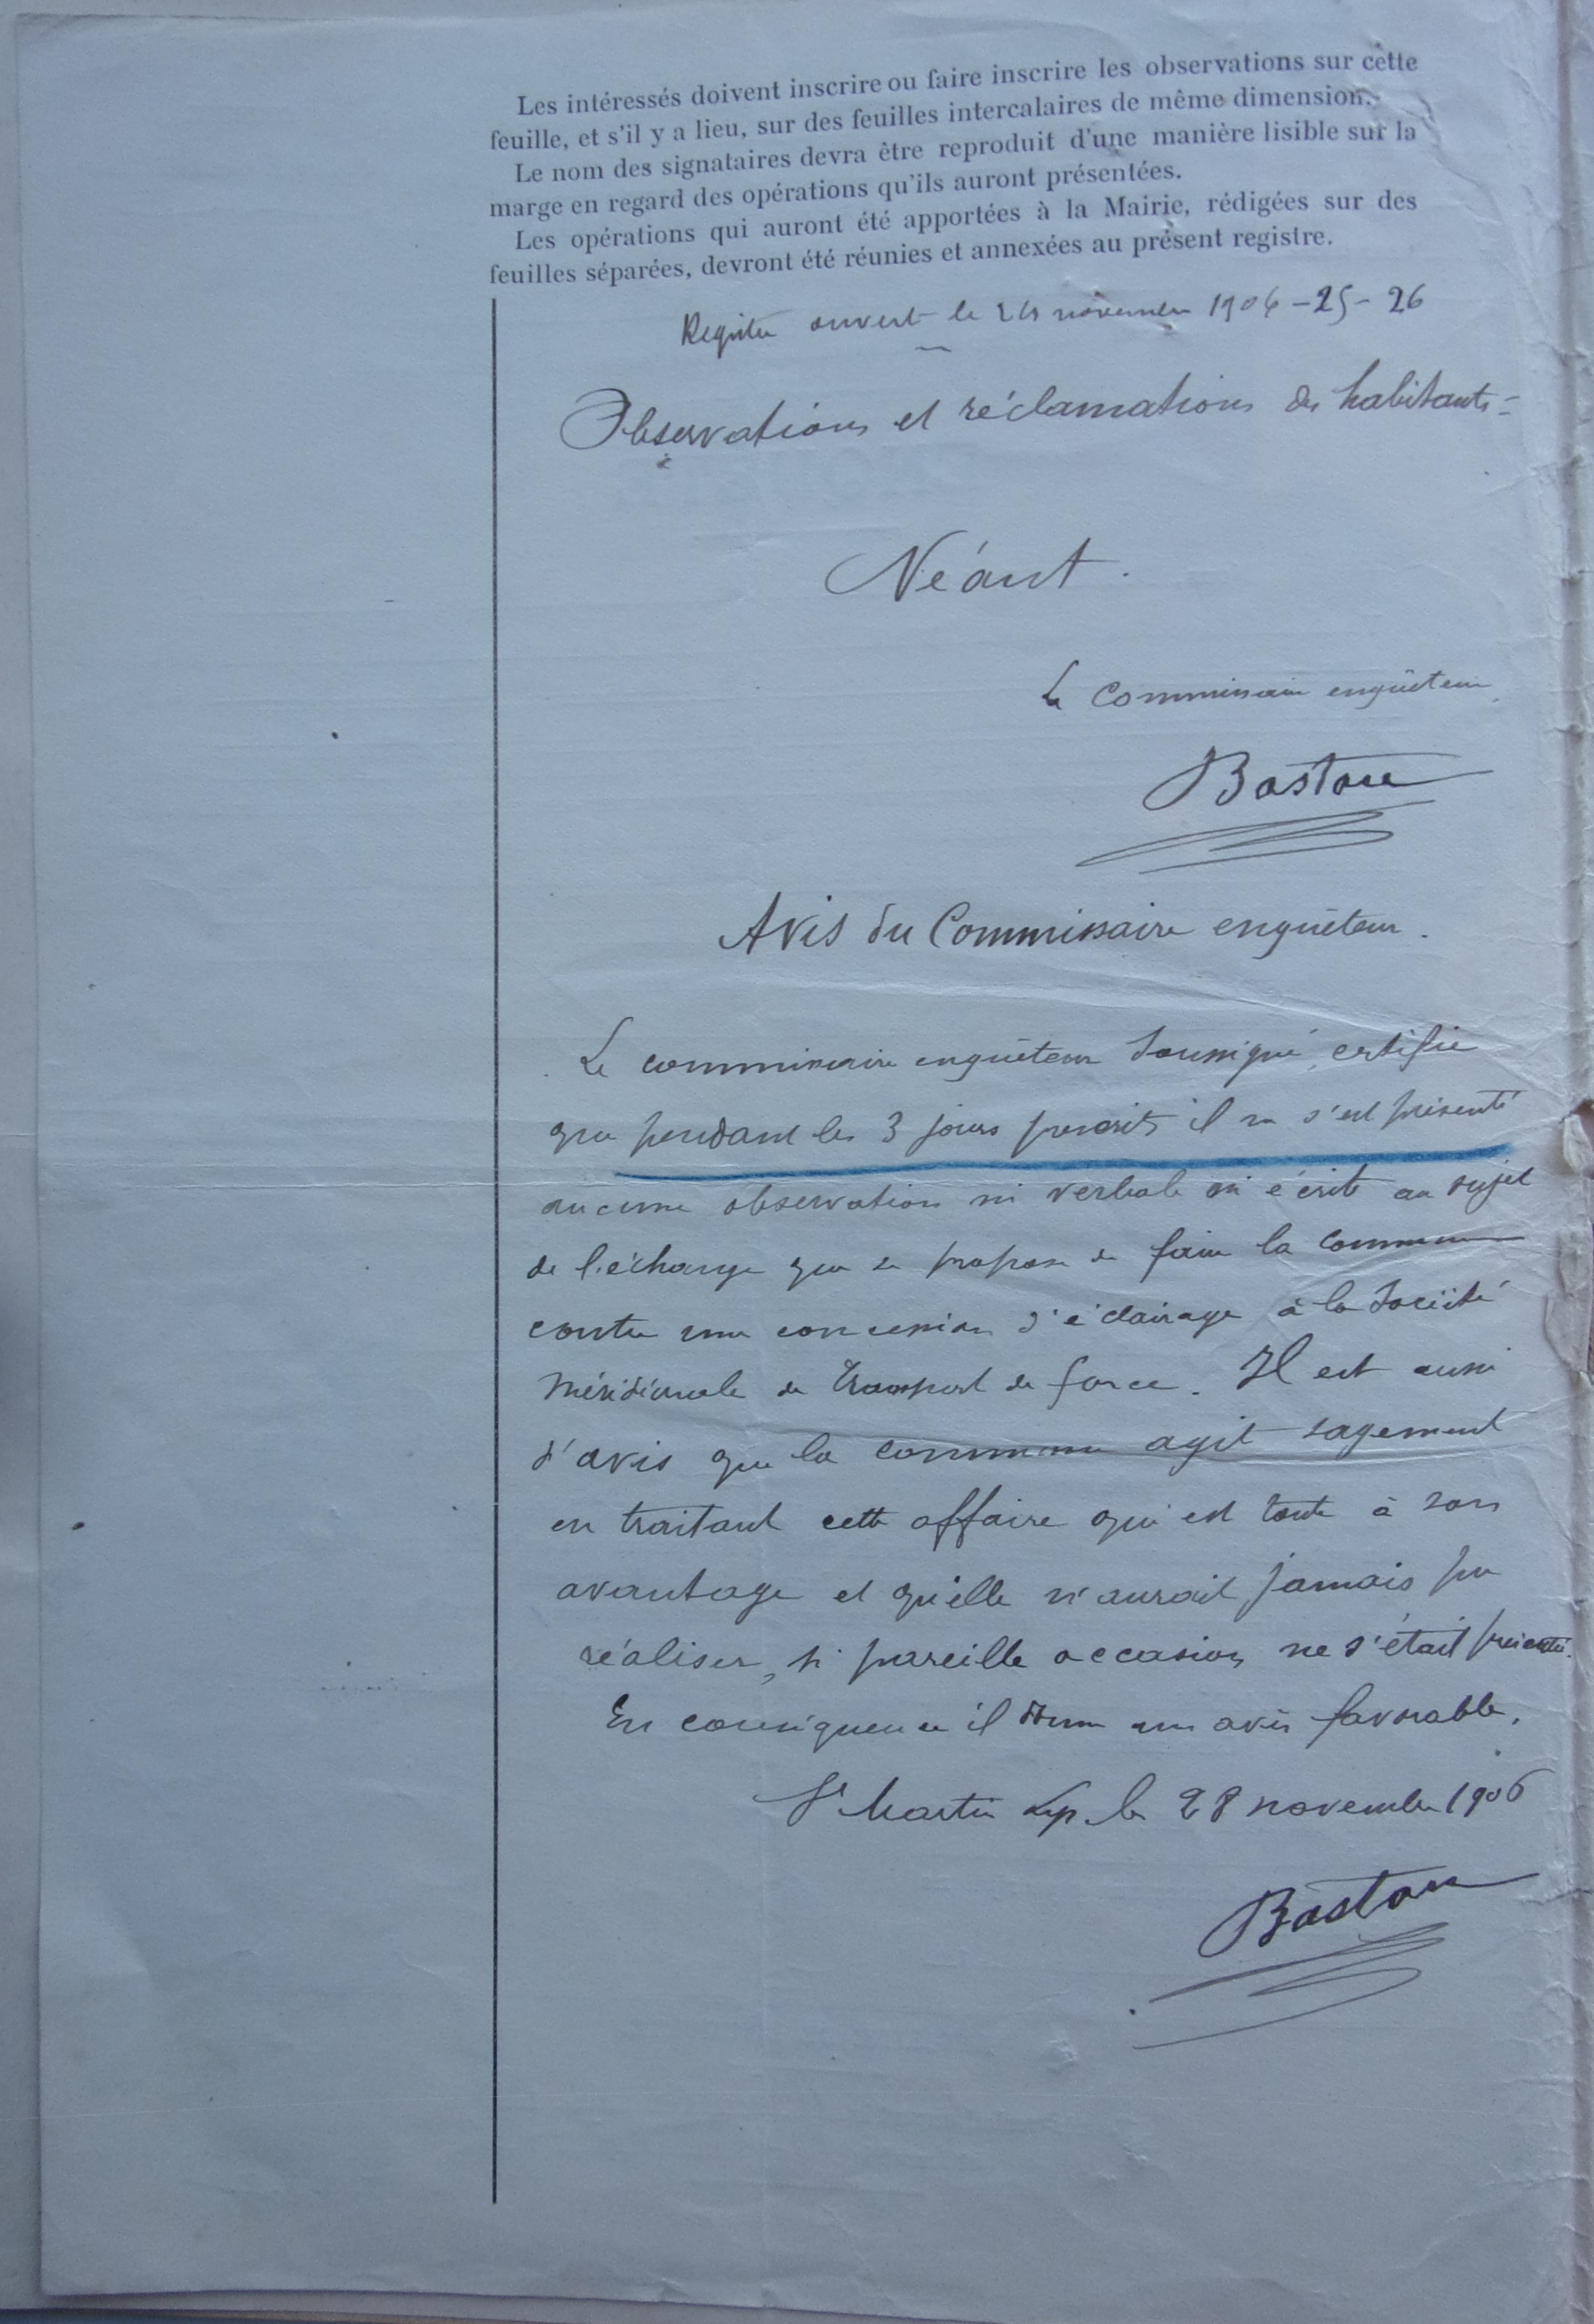 Les intéressés doivent inscrire ou faire inscrire les observations sur cette
feuille, et s'il y a lieu, sur des feuilles intercalaires de même dimension.
Le nom des signataires devra être reproduit d'une manière lisible sur la
marge en regard des opérations qu'ils auront présentées.
Les opérations qui auront été apportées à la Mairie, rédigées sur des
feuilles séparées, devront été réunies et annexées au présent registre.
Registre ouvert le 24 novembre 1906 - 25 - 26
Observations et réclamations des habitants =
Néant.
Le Commissaire enquêteur
Bastou
Avis du Commissaire enquêteur.
Le commissaire enquêteur soussigné, certifie
que pendant les 3 jours prescrits il ne s'est présenté
aucune observation ni verbale ni écrite au sujet
de l'échange que se propose de faire la commune
contre une concession d'éclairage à la Société
méridionale de transport de force. Il est aussi
d'avis que la commune agit sagement
en traitant cette affaire qui est toute à son
avantage et qu'elle n'aurait jamais pu
réaliser, si pareille occasion ne s'était présentée.
En conséquence il donne un avis favorable.
St Martin Lys le 28 novembre 1906
Bastou